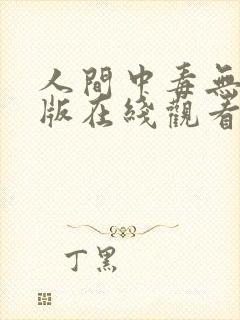 人間中毒無
版在綫觀看
丁黑